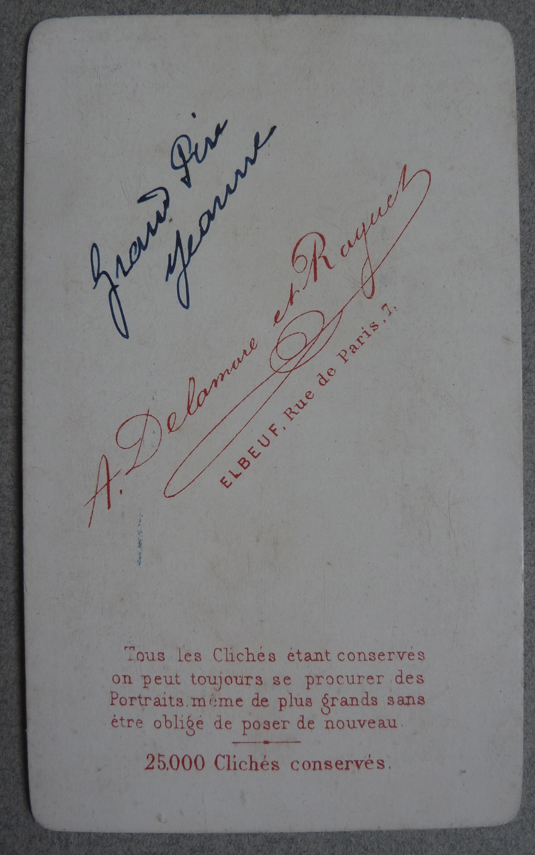 Grand Père
Jeanne
A. Delamare et Raguet
ELBEUF, Rue de Paris, 7.
Tous les Clichés étant conservés
on peut toujours se procurer des
Portraits même de plus grands sans
être obligé de poser de nouveau
25,000 Clichés conservés.